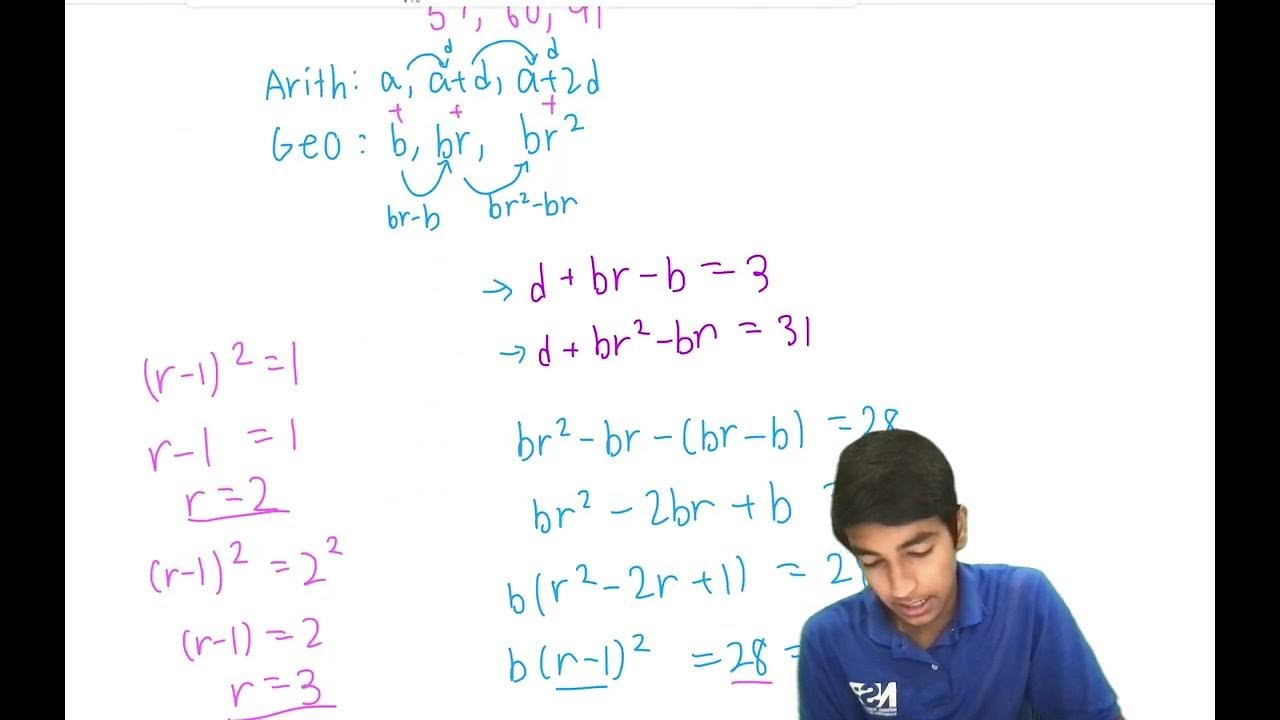 57, 60, 91
d d
Arith: a, a+d, a+2d
+ + +
Geo: b, br, br²
br-b br²-br
→ d + br - b = 3
→ d + br² - br = 31
(r-1)² = 1
r-1 = 1
r = 2
(r-1)² = 2²
(r-1) = 2
r = 3
br² - br - (br - b) = 28
br² - 2br + b =
b(r² - 2r + 1) = 2
b(r-1)² = 28 =